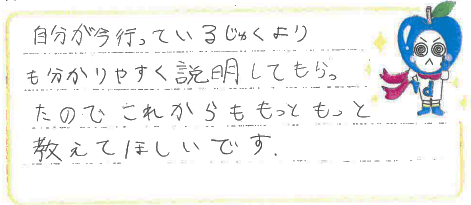 自分が今行っているじゅくより
も分かりやすく説明してもらっ
たので これからももっともっと
教えてほしいです.
d